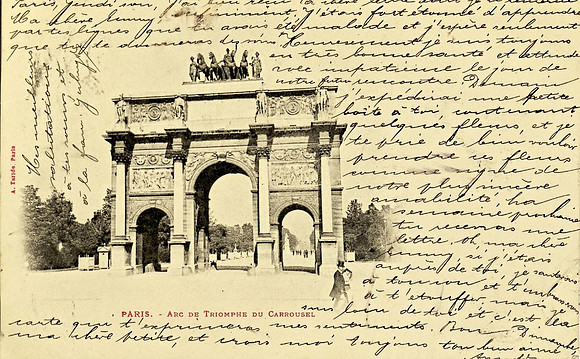 Paris, jeudi soir, J'ai bien reçu ta chère lettre dont je te remercie
Ma chère Jenny, j'étais fort étonné d'apprendre
quelques lignes que tu avais été malade et j'espère seulement
que tu te trouveras de nouveau Heureusement je suis toujours
en très bonne santé et attends
avec impatience le jour de
notre future rencontre. Demain
j'expédierai une petite
boîte à toi, contenant
quelques fleurs, et je
te prie de bien vouloir
prendre ces fleurs
comme signe de
notre plus sincère
amabilité, ha
semaine prochaine
tu recevras une
lettre. Oh, ma chère
Jenny, si j'étais
auprès de toi, je sauterais
à ton cou et t'embrasserais
à t'étouffer, mais je
suis loin de toi et c'est la
carte que t'exprimera mes sentiments. Bon dimanche
ma chère petite, et crois moi toujours ton bon ami
Mes meilleures
salutations
à tes amis et
à la famille
A. Taride, Paris
PARIS. - ARC DE TRIOMPHE DU CARROUSEL